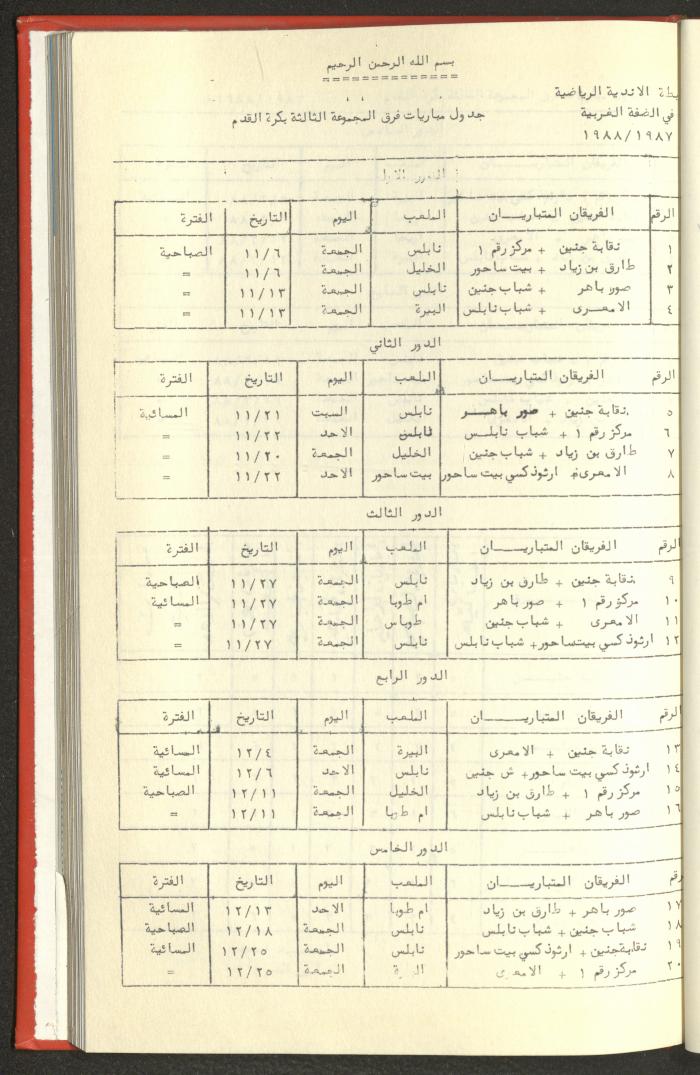 بسم الله الرحمن الرحيم
الاندية الرياضية
في الضفة الغربية
جدول مباريات فرق المجموعة الثالثة بكرة القدم
١٩٨٨/١٩٨٧
الدور الاول
الرقم الفريقان المتباريـــان الملعب اليوم التاريخ الفترة
١ نقابة جنين + مركز رقم ١ نابلس الجمعة ١١/٦ الصباحية
٢ طارق بن زياد + بيت ساحور الخليل الجمعة ١١/٦ =
٣ صور باهر + شباب جنين نابلس الجمعة ١١/١٣ =
٤ الامعـرى + شباب نابلس البيرة الجمعة ١١/١٣ =
الدور الثاني
الرقم الفريقان المتباريـــان الملعب اليوم التاريخ الفترة
٥ نقابة جنين + صور باهـــر نابلس السبت ١١/٢١ المسائية
٦ مركز رقم ١ + شباب نابلــس نابلس الاحد ١١/٢٢ =
٧ طارق بن زياد + شباب جنين الخليل الجمعة ١١/٢٠ =
٨ الامعرى+ ارثوذكسي بيت ساحور بيت ساحور الاحد ١١/٢٢ =
الدور الثالث
الرقم الفريقان المتباريـــان الملعب اليوم التاريخ الفترة
٩ نقابة جنين + طارق بن زياد نابلس الجمعة ١١/٢٧ الصباحية
١٠ مركز رقم ١ + صور باهر ام طوبا الجمعة ١١/٢٧ المسائية
١١ الامعرى + شباب جنين طوباس الجمعة ١١/٢٧ =
١٢ ارثوذكسي بيتساحور+ شباب نابلس نابلس الجمعة ١١/٢٧ =
الدور الرابع
الرقم الفريقان المتباريـــان الملعب اليوم التاريخ الفترة
١٣ نقابة جنين + الامعرى البيرة الجمعة ١٢/٤ المسائية
١٤ ارثوذكسي بيت ساحور+ ش جنين نابلس الاحد ١٢/٦ المسائية
١٥ مركز رقم ١ + طارق بن زياد الخليل الجمعة ١٢/١١ الصباحية
١٦ صور باهر + شباب نابلس ام طوبا الجمعة ١٢/١١ =
الدور الخامس
رقم الفريقان المتباريـــان الملعب اليوم التاريخ الفترة
١٧ صور باهر + طارق بن زياد ام طوبا الاحد ١٢/١٣ المسائية
١٨ شباب جنين + شباب نابلس نابلس الجمعة ١٢/١٨ الصباحية
١٩ نقابةجنين + ارثوذكسي بيت ساحور نابلس الجمعة ١٢/٢٥ المسائية
٢٠ مركز رقم ١ + الامعرى الجمعة ١٢/٢٥ =